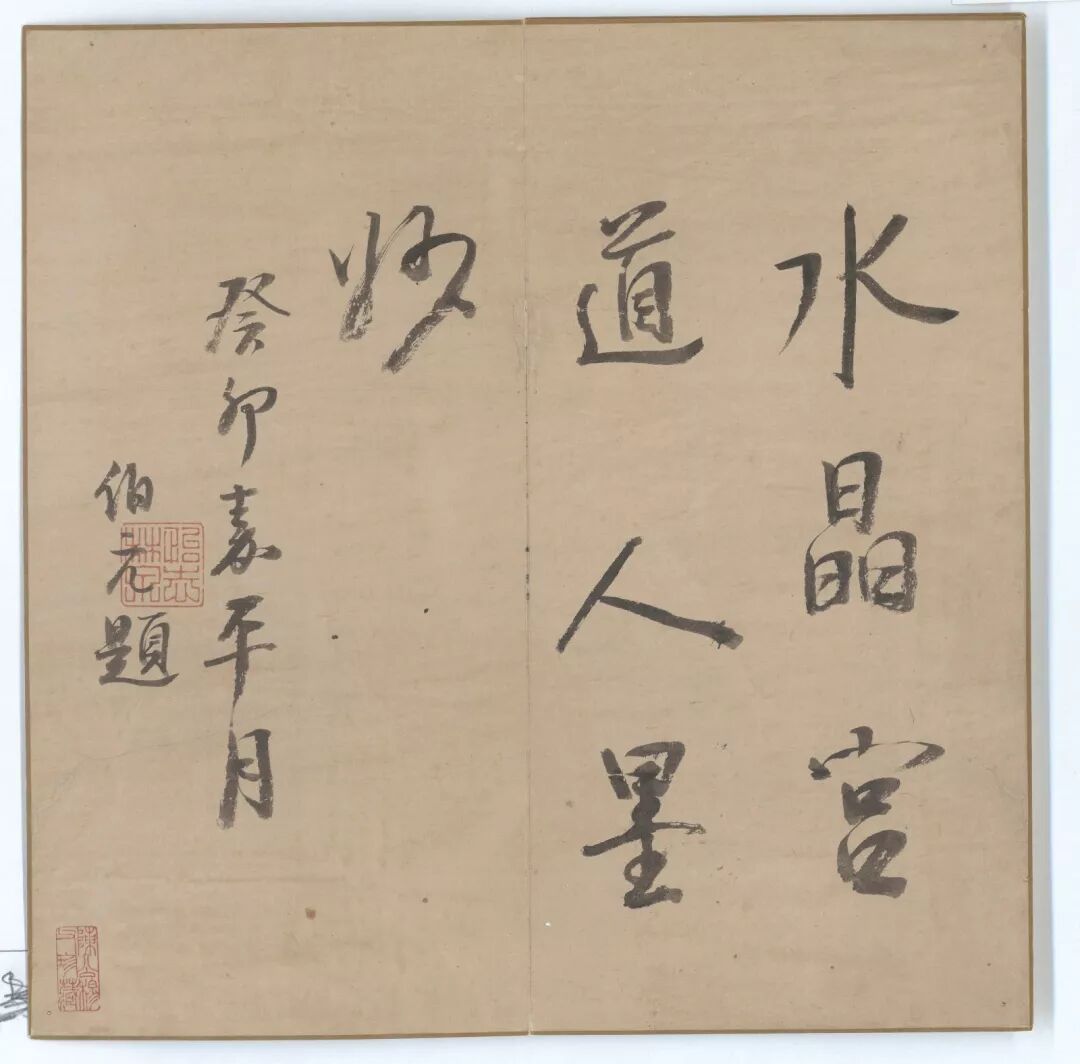 水晶宮
道人墨
妙
癸卯嘉平月
伯元題